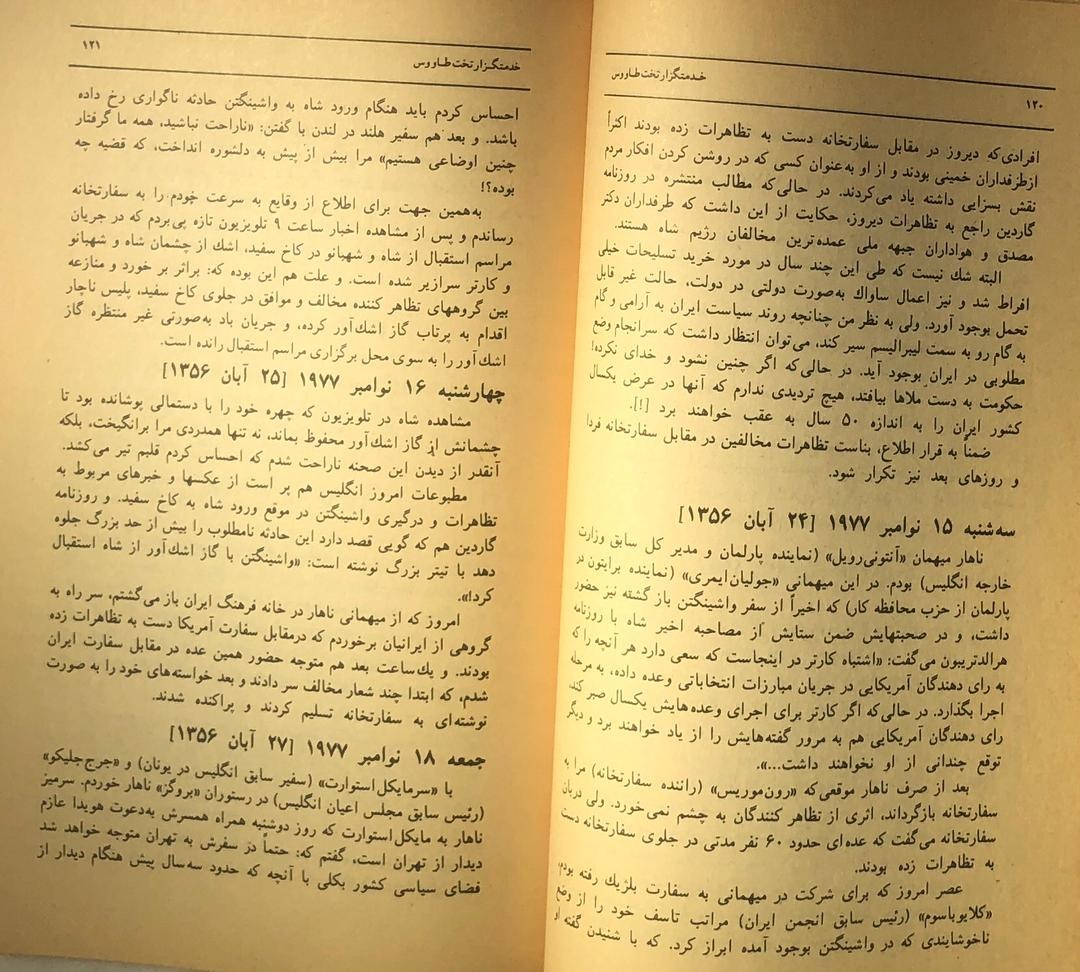 ۱۲۰
خدمتگزار تخت طاووس
افرادی‌که دیروز در مقابل سفارتخانه دست به تظاهرات زده بودند اکثراً
ازطرفداران خمینی بودند و از او به‌عنوان کسی که در روشن کردن افکار مردم
نقش بسزایی داشته یاد می‌کردند. در حالی‌که مطالب منتشره در روزنامه
گاردین راجع به تظاهرات دیروز، حکایت از این داشت که طرفداران دکتر
مصدق و هواداران جبهه ملی عمده‌ترین مخالفان رژیم شاه هستند.
البته شك نیست که طی این چند سال در مورد خرید تسلیحات خیلی
افراط شد و نیز اعمال ساواك به‌صورت دولتی در دولت، حالت غیر قابل
تحمل بوجود آورد. ولی به نظر من چنانچه روند سیاست ایران به آرامی و گام
به گام رو به سمت لیبرالیسم سیر کند، می‌توان انتظار داشت که سرانجام وضع
مطلوبی در ایران بوجود آید. در حالی‌که اگر چنین نشود و خدای نکرده!
حکومت به دست ملاها بیافتد، هیچ تردیدی ندارم که آنها در عرض یکسال
کشور ایران را به اندازه ۵۰ سال به عقب خواهند برد [!].
ضمناً به قرار اطلاع، بناست تظاهرات مخالفین در مقابل سفارتخانه فردا
و روزهای بعد نیز تکرار شود.
سه‌شنبه ۱۵ نوامبر ۱۹۷۷ [۲۴ آبان ۱۳۵۶]
ناهار میهمان «آنتونی‌رویل» (نماینده پارلمان و مدیر کل سابق وزارت
خارجه انگلیس) بودم. در این میهمانی «جولیان‌ایمری» (نماینده برایتون در
پارلمان از حزب محافظه کار) که اخیراً از سفر واشینگتن باز گشته نیز حضور
داشت، و در صحبتهایش ضمن ستایش از مصاحبه اخیر شاه با روزنامه
هرالدتریبون می‌گفت: «اشتباه کارتر در اینجاست که سعی دارد هر آنچه را که
به رای دهندگان آمریکایی در جریان مبارزات انتخاباتی وعده داده، به مرحله
اجرا بگذارد. در حالی‌که اگر کارتر برای اجرای وعده‌هایش یکسال صبر کند،
رای دهندگان آمریکایی هم به مرور گفته‌هایش را از یاد خواهند برد و دیگر
توقع چندانی از او نخواهند داشت...».
بعد از صرف ناهار موقعی‌که «رون‌موریس» (راننده سفارتخانه) مرا به
سفارتخانه بازگرداند، اثری از تظاهر کنندگان به چشم نمی خورد. ولی دربان
سفارتخانه می‌گفت که عده‌ای حدود ۶۰ نفر مدتی در جلوی سفارتخانه دست
به تظاهرات زده بودند.
عصر امروز که برای شرکت در میهمانی به سفارت بلژیك رفته بودم،
«کلایوباسوم» (رئیس سابق انجمن ایران) مراتب تاسف خود را از وضع
ناخوشایندی که در واشینگتن بوجود آمده ابراز کرد. که با شنیدن گفته او
۱۲۱
خدمتگزار تخت طاووس
احساس کردم باید هنگام ورود شاه به واشینگتن حادثه ناگواری رخ داده
باشد. و بعد هم سفیر هلند در لندن با گفتن: «ناراحت نباشید، همه ما گرفتار
چنین اوضاعی هستیم» مرا بیش از پیش به دلشوره انداخت، که قضیه چه
بوده؟!
به‌همین جهت برای اطلاع از وقایع به سرعت خودم را به سفارتخانه
رساندم و پس از مشاهده اخبار ساعت ۹ تلویزیون تازه پی‌بردم که در جریان
مراسم استقبال از شاه و شهبانو در کاخ سفید، اشك از چشمان شاه و شهبانو
و کارتر سرازیر شده است. و علت هم این بوده که: براثر بر خورد و منازعه
بین گروههای تظاهر کننده مخالف و موافق در جلوی کاخ سفید، پلیس ناچار
اقدام به پرتاب گاز اشك‌آور کرده، و جریان باد به‌صورتی غیر منتظره گاز
اشك‌آور را به سوی محل برگزاری مراسم استقبال رانده است.
چهارشنبه ۱۶ نوامبر ۱۹۷۷ [۲۵ آبان ۱۳۵۶]
مشاهده شاه در تلویزیون که چهره خود را با دستمالی پوشانده بود تا
چشمانش از گاز اشك‌آور محفوظ بماند، نه تنها همدردی مرا برانگیخت، بلکه
آنقدر از دیدن این صحنه ناراحت شدم که احساس کردم قلبم تیر می‌کشد.
مطبوعات امروز انگلیس هم پر است از عکسها و خبرهای مربوط به
تظاهرات و درگیری واشینگتن در موقع ورود شاه به کاخ سفید. و روزنامه
گاردین هم که گویی قصد دارد این حادثه نامطلوب را بیش از حد بزرگ جلوه
دهد با تیتر بزرگ نوشته است: «واشینگتن با گاز اشك‌آور از شاه استقبال
کرد!».
امروز که از میهمانی ناهار در خانه فرهنگ ایران باز می‌گشتم، سر راه به
گروهی از ایرانیان برخوردم که درمقابل سفارت آمریکا دست به تظاهرات زده
بودند. و یك‌ساعت بعد هم متوجه حضور همین عده در مقابل سفارت ایران
شدم، که ابتدا چند شعار مخالف سر دادند و بعد خواسته‌های خود را به صورت
نوشته‌ای به سفارتخانه تسلیم کردند و پراکنده شدند.
جمعه ۱۸ نوامبر ۱۹۷۷ [۲۷ آبان ۱۳۵۶]
با «سرمایکل‌استوارت» (سفیر سابق انگلیس در یونان) و «جرج‌جلیکو»
(رئیس سابق مجلس اعیان انگلیس) در رستوران «بروگز» ناهار خوردم. سرمیز
ناهار به مایکل‌استوارت که روز دوشنبه همراه همسرش به‌دعوت هویدا عازم
دیدار از تهران است، گفتم که: حتماً در سفرش به تهران متوجه خواهد شد
فضای سیاسی کشور بکلی با آنچه که حدود سه‌سال پیش هنگام دیدار از